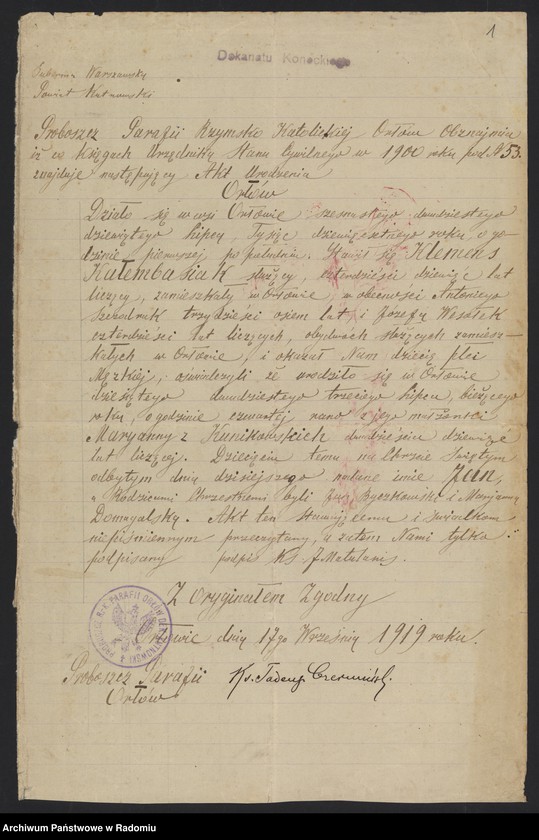 1
Dekanatu Koneckiego
Gubernia Warszawska
Powiat Kutnowski
Proboszcz Parafii Rzymsko Katolickiej Orłów Oznajmia
iż w księgach Urzędnika Stanu Cywilnego w 1900 roku pod N 53
znajduje następujący Akt Urodzenia
Orłów
Działo się we wsi Orłowie dwudziestego
dziewiątego lipca, Tysiąc dziewięćsetnego roku, o go-
dzinie pierwszej po południu. Stawił się Klemens
Kałembasiak służący, czterdzieści dziewięć lat
liczący, zamieszkały w Orłowie, w obecności Antoniego
trzydzieści osiem lat i Józefa Wesołek
czterdzieści lat liczących, obydwóch służących zamiesz-
kałych w Orłowie, i okazał Nam dziecię płci
Męzkiej, oświadczyli że urodziło się w Orłowie
dwudziestego trzeciego lipca, bieżącego
roku, o godzinie czwartej rano z jego małżonki
Maryanny z Kunikowskich dwadzieścia dziewięć
lat liczącej. Dziecięciu temu na Chrzcie Świętym
odbytym dnia dzisiejszego nadano imię Jan,
a Rodzicami Chrzestnemi byli Byczkowski i Maryanna
Domagalska. Akt ten stawiającemu i świadkom
niepiśmiennym przeczytany, a zatem Nami tylko
podpisany podpis Ks. J. Matulanis.
Z Oryginałem Zgodny
Orłowie dnia 17go Września 1919 roku.
Proboszcz Parafii Ks. Tadeusz Czermiński
Orłów
Archiwum Państwowe w Radomiu